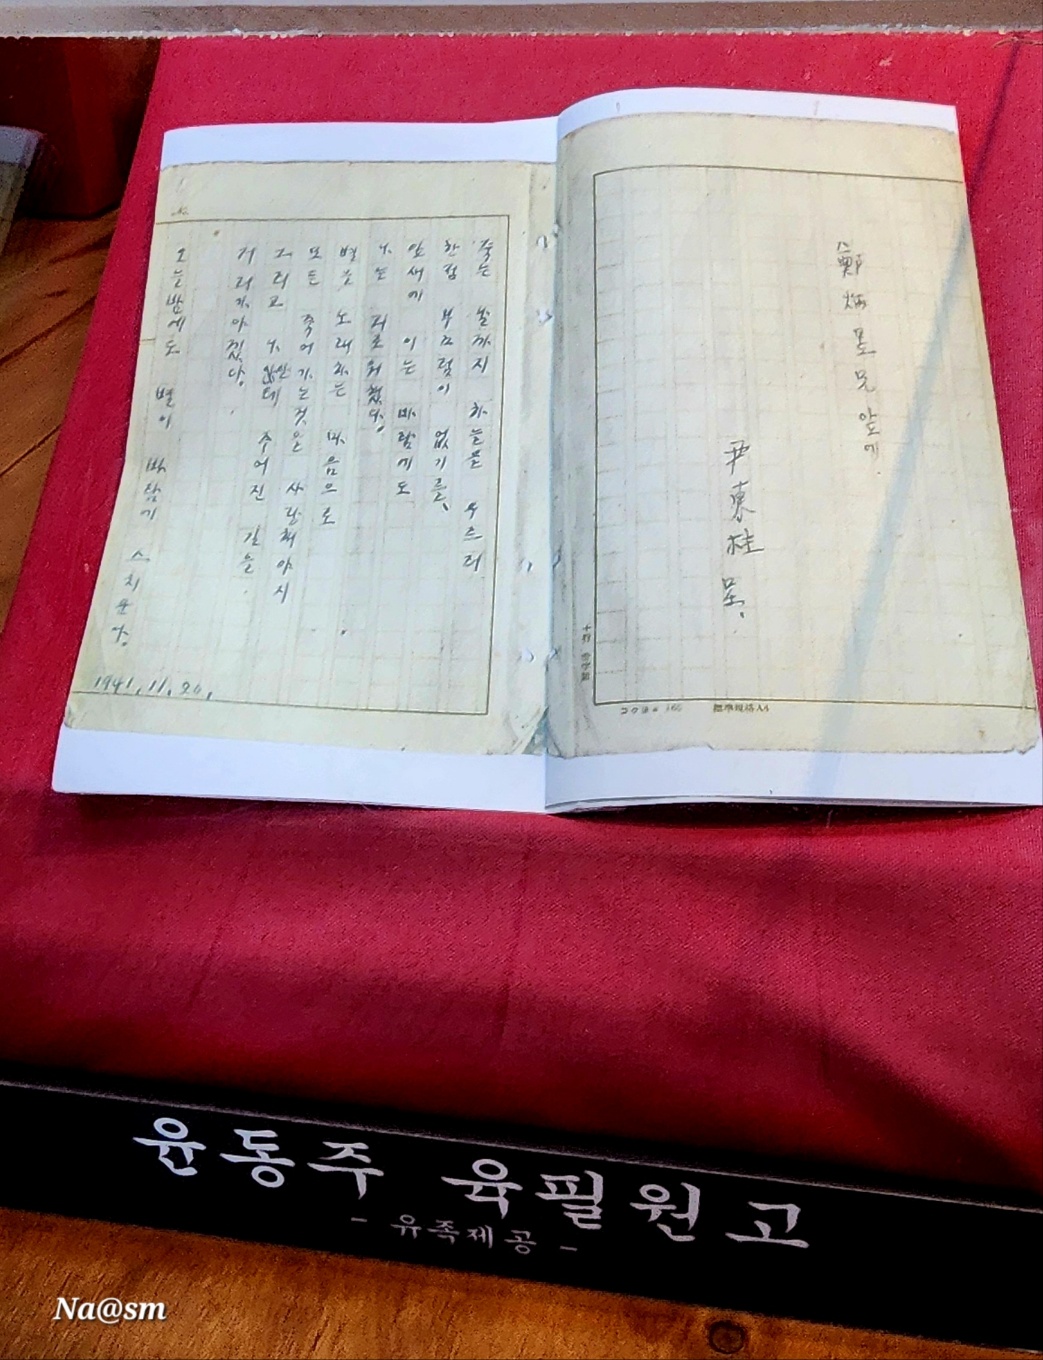 鄭炳昱兄앞에.
尹東柱 呈.
標準規格A4
죽는 날까지 하늘을 우르러
한점 부끄럼이 없기를,
잎새에 이는 바람에도
나는 괴로워했다.
별을 노래하는 마음으로
모든 죽어가는것을 사랑해야지
그리고 나안테 주어진 길을
거러가야겠다.
오늘밤에도 별이 바람에 스치운다.
1941.11.20.
윤동주 육필원고
- 유족제공 -
Na@sm